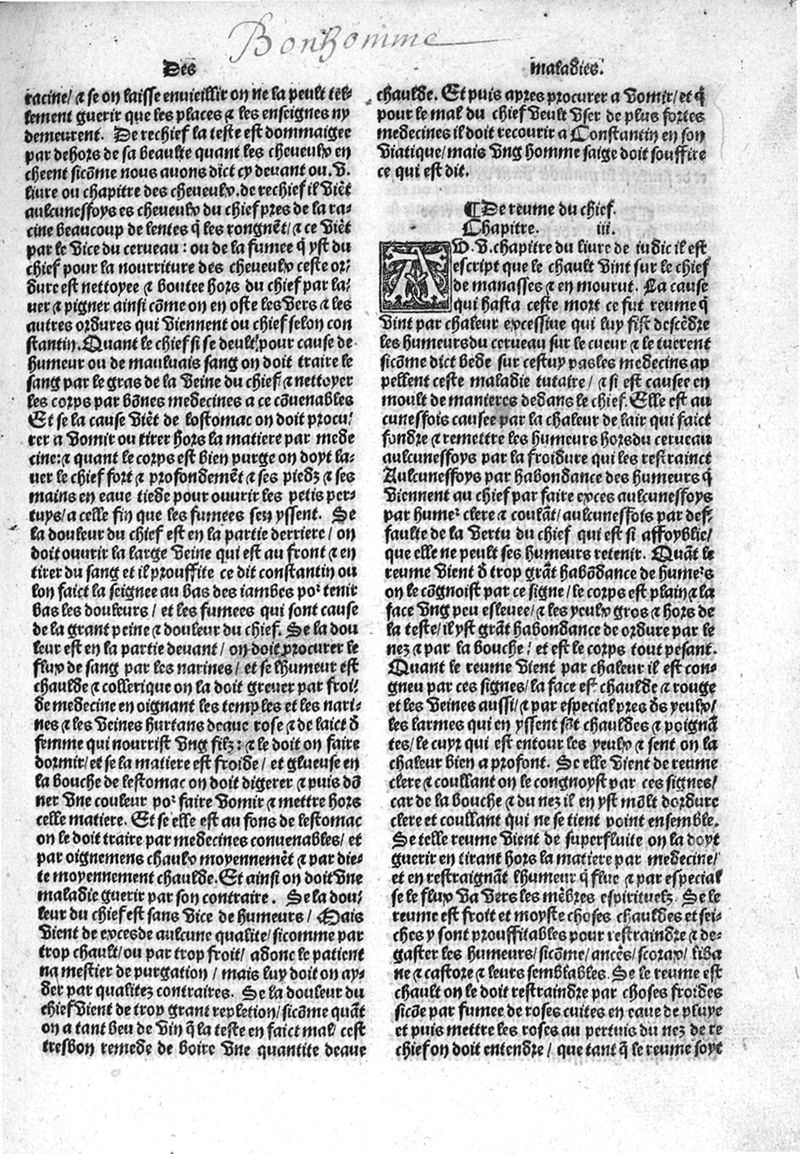 Bonhomme
Des
maladies.
racine/ ⁊ se on laisse envieillir on ne la peult tel-
lement guerir que les places ⁊ les enseignes ny
demeurent. De rechief la teste est dommaigee
par dehors de sa beaulte quant les cheveulx en
cheent sicõme nous avons dict cy devant ou. v.
livre ou chapitre des cheveulx. de rechief il viẽt
aulcunesfoys es cheveulx du chief pres de la ra-
cine beaucop de lentes q̃ les rongnẽt/ ⁊ ce viẽt
par le vice du cerveau : ou de la fumee q̃ yst du
chief pour la nourriture des cheveulx ceste or/
dure est nettoyee ⁊ boutee hors du chief par la/
ver ⁊ pigner ainsi cõme on en oste les vers ⁊ les
autres ordures qui viennent ou chief selon con
stantin. Quant le chief si se deult/ pour cause de
humeur ou de maulvais sang on doit traire le
sang par le gras de la veine du chief ⁊ nettoyer
les corps par bõnes medecines a ce cõvenables
Et se la cause viẽt de lostomac on doit procu/
rer a vomir ou tirer hors la matiere par mede
cine: ⁊ quant le corps est bien purge on doyt la-
ver le chief fort ⁊ profondemẽt ⁊ ses piedz ⁊ ses
mains en eaue tiede pour ouvrir les petis per-
tuys/ a celle fin que les fumees sen yssent. Se
la douleur du chief est en la partie derriere/ on
doit ouvrir la large veine qui est au front ⁊ en
tirer du sang et il prouffite ce dit constantin ou
lon faict la seignee au bas des iambes poꝛ tenir
bas les douleurs/ et les fumees qui sont cause
de la grant peine ⁊ douleur du chief. Se la dou
leur est en la partie devant/ on doit procurer le
flux de sang par les narines/ et se lhumeur est
chaulde ⁊ collerique on la doit grever par froi/
de medecine en oignant les temples et les nari-
nes ⁊ les veines hurtans deaue rose ⁊ de laict d̃
femme qui nourrist ung filz: ⁊ le doit on faire
dormir/ et se la matiere est froide/ et glueuse en
la bouche de lestomac on doit digerer ⁊ puis dõ
ner une couleur poꝛ faire vomir ⁊ mettre hors
celle matiere. Et se elle est au fons de lestomac
on le doit traire par medecines convenables/ et
par oignemens chaulx moyennemẽt ⁊ par die-
te moyennement chaulde. Et ainsi on doit une
maladie guerir par son contraire. Se la dou/
leur du chief est sans vice de humeurs/ Mais
vient de exces de aulcune qualite/ sicomme par
trop chault/ ou par trop froit/ adonc le patient
na mestier de purgation/ mais luy doit on ay-
der par qualitez contraires. Se la douleur du
chief vient de trop grant repletion/ sicõme quãt
on a tant beu de vin q̃ la teste en faict mal cest
tresbon remede de boire une quantite deaue
chaulde. Et puis apres procurer a vomir/ et q̃
pour le mal du chief veult user de plus fortes
medecines il doit recourir a Constantin en son
viatique/ mais ung homme saige doit souffire
ce qui est dit.
¶De reume du chief.
Chapitre. iii.
AU. v. chapitre du livre de iudic il est
escript que le chault vint sur le chief
de manasses ⁊ en mourut. La cause
qui hasta ceste mort ce fut reume q̃
vint par chaleur excessive qui luy fist descẽdre
les humeurs du cerveau sur le cueur ⁊ le tuerent
sicõme dict bede sur cestuy pas les medecins ap
pellent ceste maladie tutaire/ ⁊ si est causee en
moult de manieres dedans le chief. Elle est au
cunesfois causee par la chaleur de lair qui faict
fondre ⁊ remettre les humeurs hors du cerveau
aulcunesfoys par la froidure qui les restrainct
Aulcunesfoys par habondance des humeurs q̃
viennent au chief par faire exces aulcunesfoys
par humeꝛ clere ⁊ coulãt/ aulcunesfois par def/
faulte de la vertu du chief qui est si affoyblie/
que elle ne peult ses humeurs retenir. Quãt le
reume vient d̃ trop grãt habõdance de humeꝛs
on le cõgnoist par ce signe/ le corps est plain ⁊ la
face ung peu eslevee/ ⁊ les yeulx gros ⁊ hors de
la teste/ il yst grãt habondance de ordure par le
nez ⁊ par la bouche/ et est le corps tout pesant.
Quant le reume vient par chaleur il est con-
gneu par ces signes/ la face est chaulde ⁊ rouge
et les veines aussi/ ⁊ par especial pres d̃s yeulx/
les larmes qui en yssent sõt chauldes ⁊ poignã
tes/ le cuyr qui est entour les yeulx ⁊ sent on la
chaleur bien a profont. Se elle vient de reume
clere ⁊ coullant on le congnoyst par ces signes/
car de la bouche ⁊ du nez il en yst mõlt dordure
clere et coullant qui ne se tient point ensemble.
Se telle reume vient de superfluite on la doyt
guerir en tirant hors la matiere par medecine/
et en restraignãt lhumeur q̃ flue ⁊ par especial
se le flux va vers les mẽbres espirituelz. Se le
reume est froit et moyste choses chauldes et sei-
ches y sont prouffitables pour restraindre ⁊ de-
gaster les humeurs/ sicõme/ ancẽs/ scorax/ liba
ne ⁊ castore ⁊ leurs semblables. Se le reume est
chault on le doit restraindre par choses froides
sicõe par fumee de roses cuites en eaue de pluye
et puis mettre les roses au pertuis du nez de re
chief on doit entendre/ que tant q̃ le reume soyt